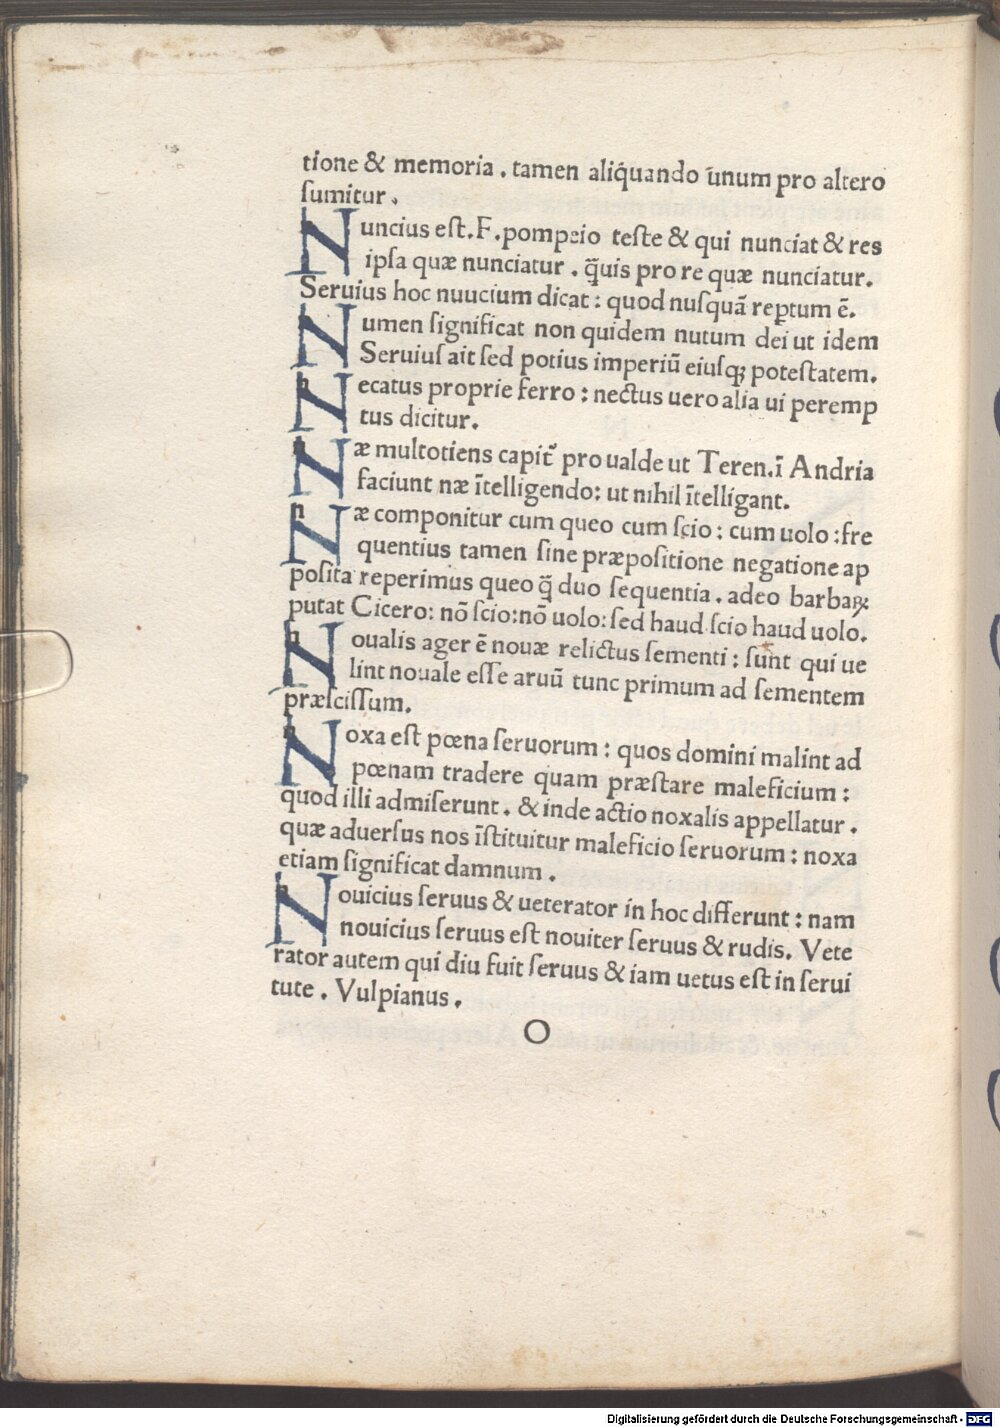 tione & memoria . tamen aliq̃uando ũnum pro altero
ſumitur .
Nuncius eſt. F. pompeio teſte & qui nunciat & res
ipſa quæ nunciatur . q̃uis pro re quæ nunciatur.
Seruius hoc nuucium dicat : quod nuſquã reꝑtum ē.
Numen ſignificat non quidem nutum dei ut idem
Seruiuſ ait ſed potius imperiũ eiuſqꝫ poteſtatem.
Necatus proprie ferro : nectus uero alia ui peremp
tus dicitur.
Næ multotiens capit̃ pro ualde ut Teren. ĩ Andria
faciunt næ ĩtelligendo: ut nihil ĩtelligant.
Næ componitur cum queo cum ſcio : cum uolo : fre
quentius tamen ſine præpoſitione negatione ap
poſita reperimus queo q̃ duo ſequentia . adeo barbaꝝ
putat Cicero: nõ ſcio: nõ uolo: ſed haud ſcio haud uolo.
Noualis ager ē nouæ relictus ſementi : ſunt qui ue
lint nouale eſſe aruũ tunc primum ad ſementem
præſciſſum.
Noxa eſt pœna ſeruorum : quos domini malint ad
pœnam tradere quam præſtare maleficium :
quod illi admiſerunt . & inde actio noxalis appellatur .
quæ aduerſus nos ĩſtituitur maleficio ſeruorum : noxa
etiam ſignificat damnum .
Nouicius ſeruus & ueterator in hoc differunt : nam
nouicius ſeruus eſt nouiter ſeruus & rudis. Vete
rator autem qui diu fuit ſeruus & iam uetus eſt in ſerui
tute . Vulpianus .
O
Digitalisierung gefördert durch die Deutsche Forschungsgemeinschaft - DFG